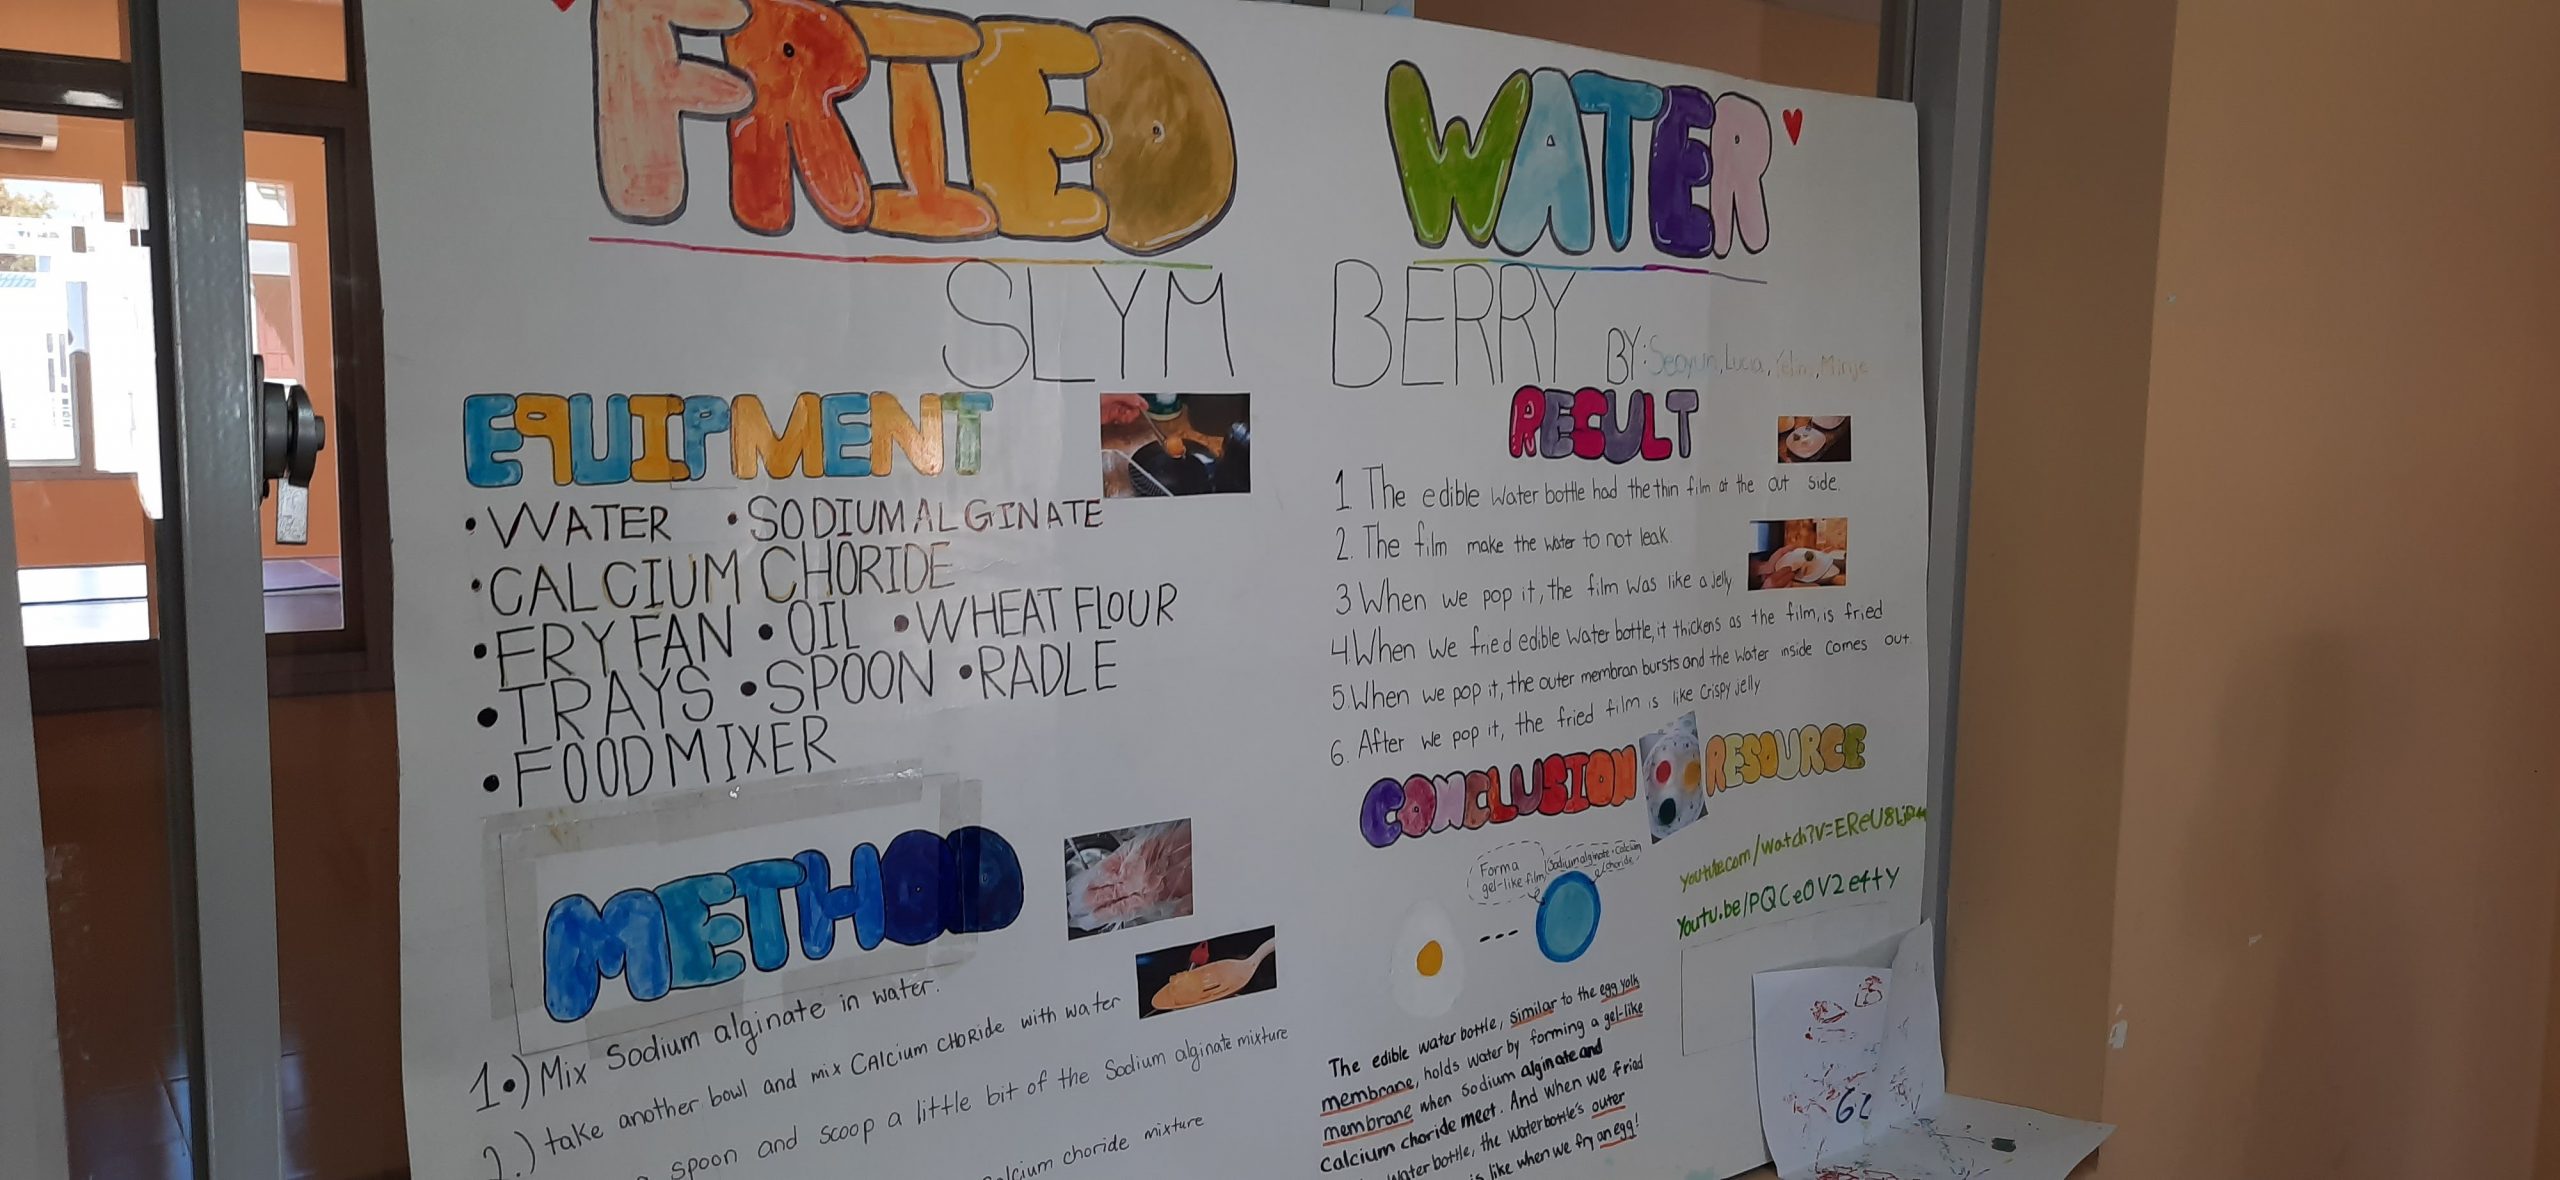 FRIED WATER
SLYM BERRY BY: Seoyun, Lucia, Yelin, Minje
EQUIPMENT
• WATER • SODIUM ALGINATE
• CALCIUM CHORIDE
• FRY FAN • OIL • WHEAT FLOUR
• TRAYS • SPOON • RADLE
• FOOD MIXER
METHOD
1.) Mix Sodium alginate in water.
2.) take another bowl and mix CAlcium CHORide with water
spoon and scoop a little bit of the Sodium alginate mixture
choride mixture
RECULT
1 The edible water bottle had the thin film at the out side.
2. The film make the water to not leak.
3 When we pop it, the film was like a jelly
4. When we fried edible water bottle, it thickens as the film, is fried
5. When we pop it, the outer membran bursts and the water inside comes out.
6. After we pop it, the fried film is like crispy jelly
CONCLUSION
Forma
gel-like film
Sodium alginate + Calcium
choride
The edible water bottle, similar to the egg yolk
membrane, holds water by forming a gel-like
membrane when sodium alginate and
Calcium choride meet. And when we fried
water bottle, the waterbottle's outer
is like when we fry an egg!
RESOURCE
youtube.com/watch?v=
youtu.be/PQCe0V2e4ty